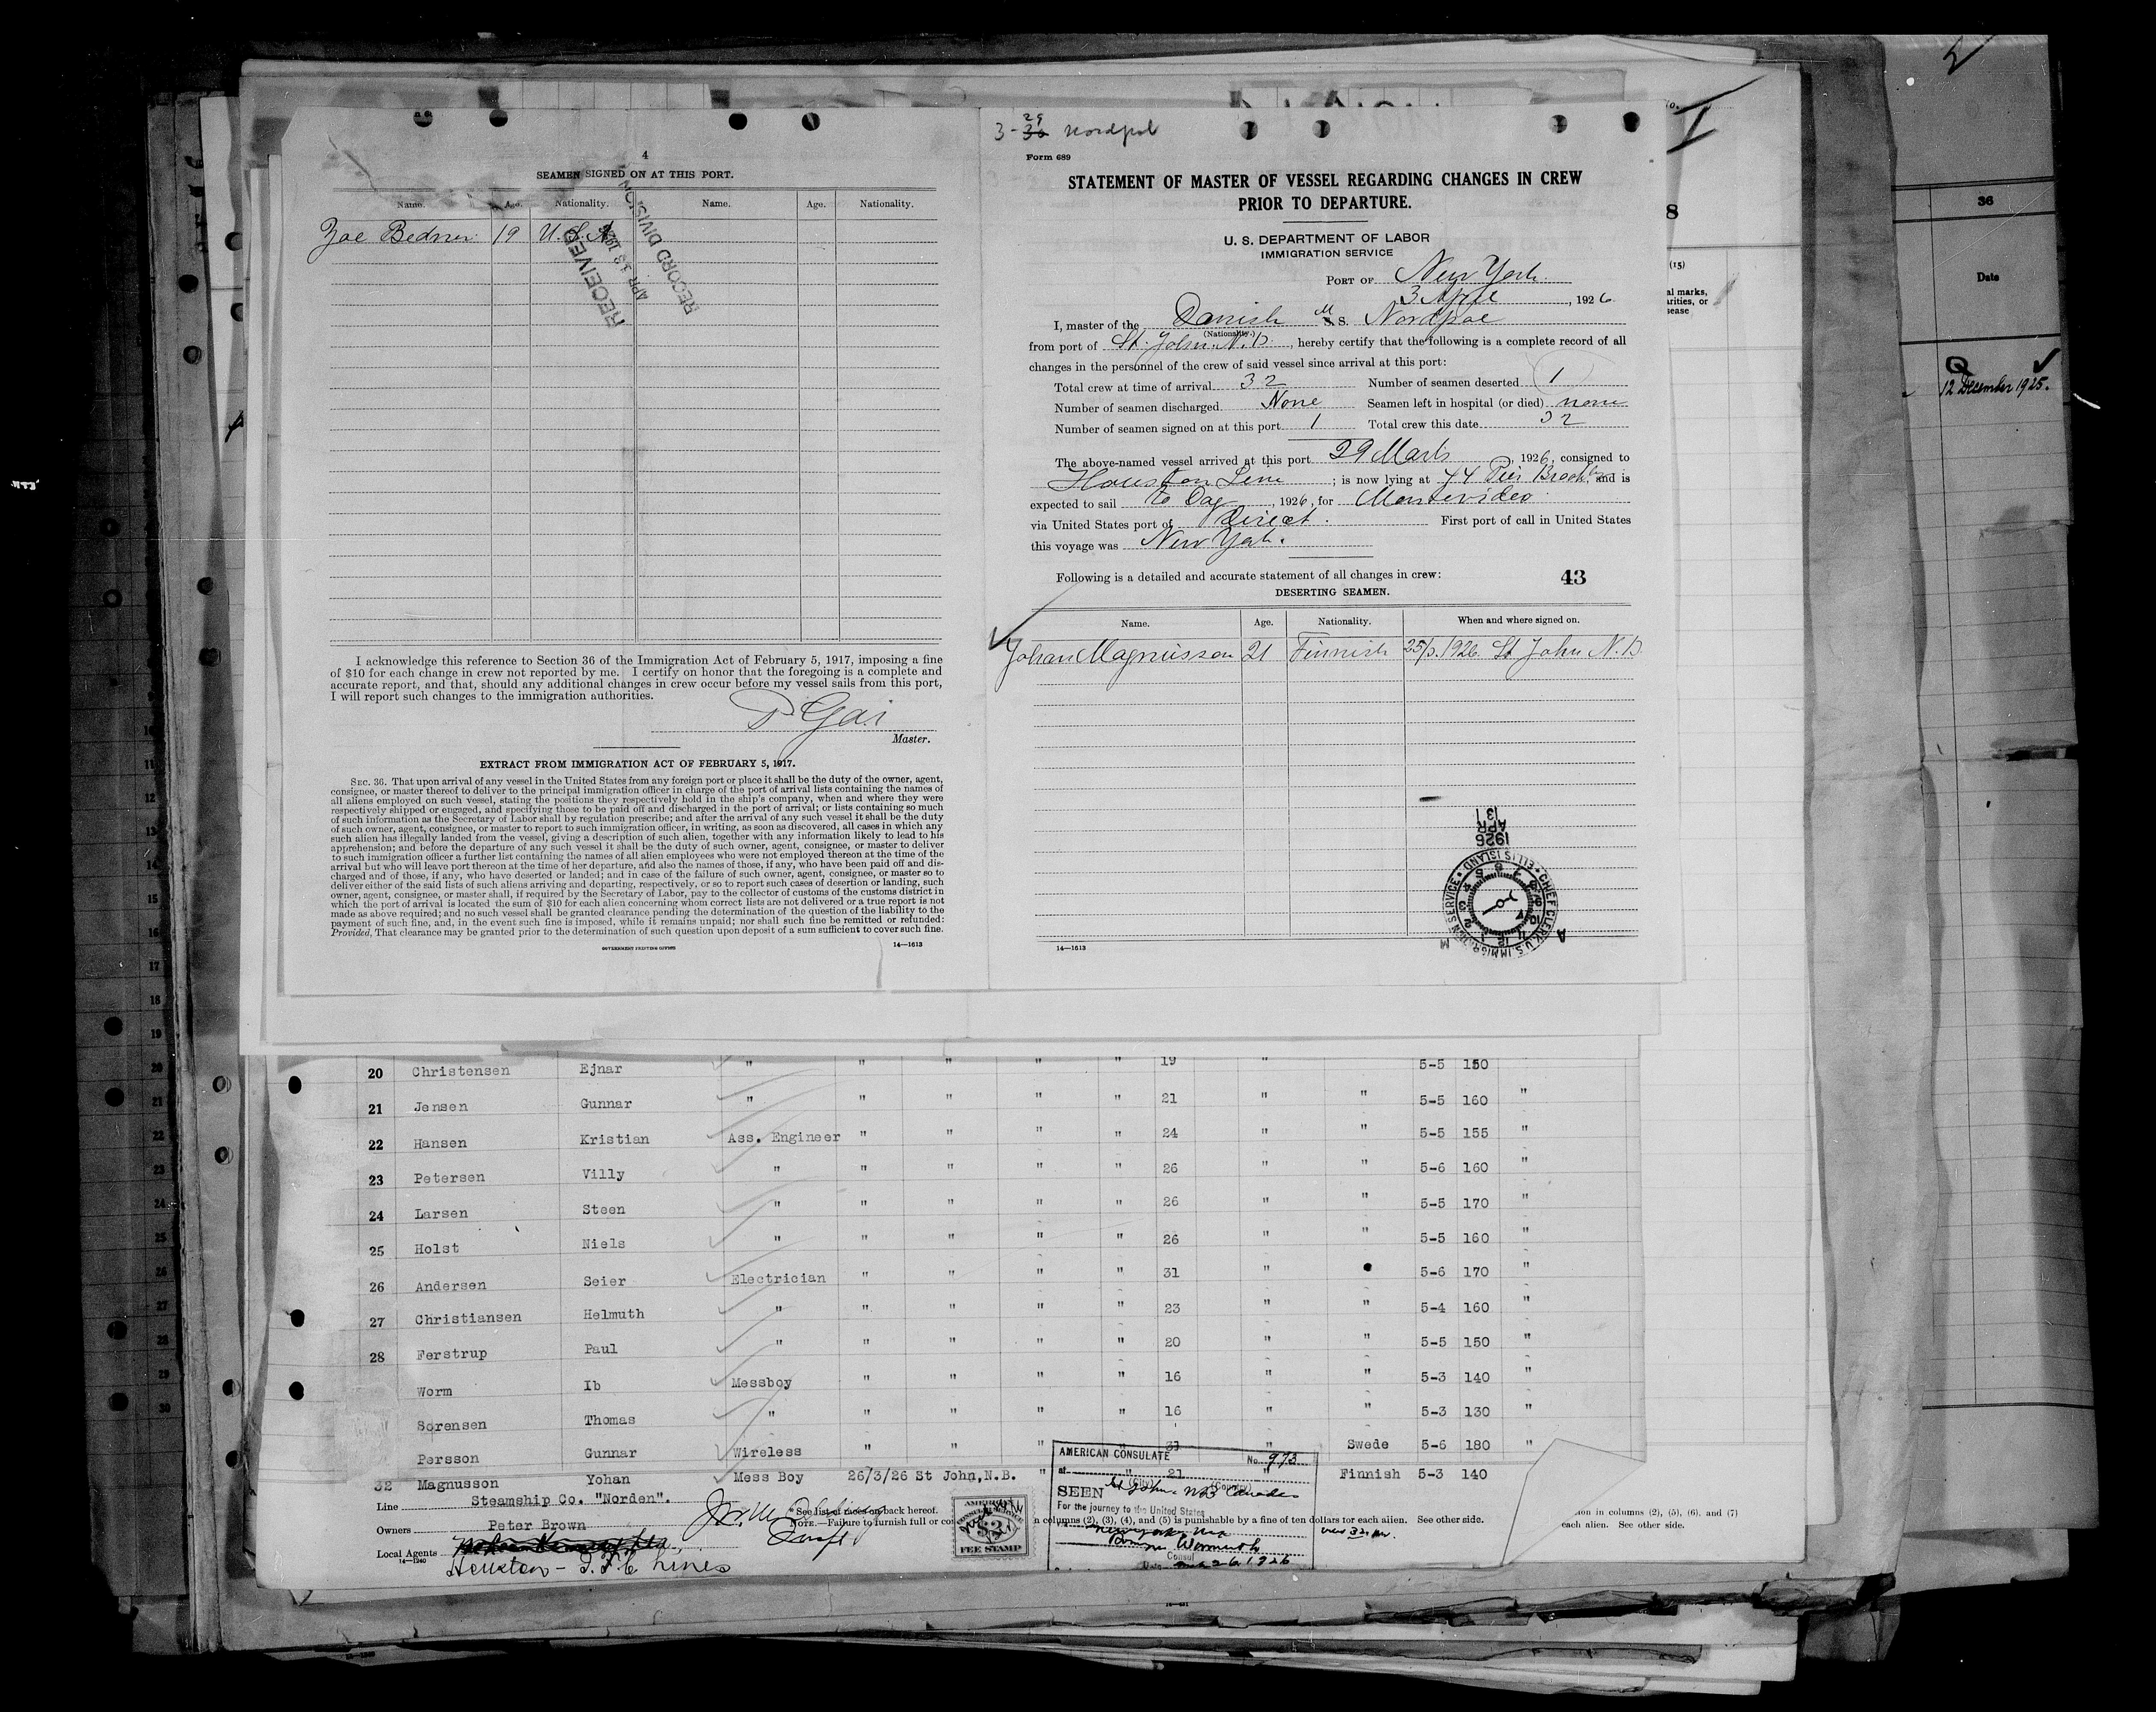 3-29 Nordpol
4
SEAMEN SIGNED ON AT THIS PORT.
Name. Age. Nationality. Name. Age. Nationality.
Zoe Bedner 19 U.S.A.
RECEIVED
APR 13 1926
RECORD DIVISION
I acknowledge this reference to Section 36 of the Immigration Act of February 5, 1917, imposing a fine
of $10 for each change in crew not reported by me. I certify on honor that the foregoing is a complete and
accurate report, and that, should any additional changes in crew occur before my vessel sails from this port,
I will report such changes to the immigration authorities.
Master.
EXTRACT FROM IMMIGRATION ACT OF FEBRUARY 5, 1917.
SEC. 36. That upon arrival of any vessel in the United States from any foreign port or place it shall be the duty of the owner, agent,
consignee, or master thereof to deliver to the principal immigration officer in charge of the port of arrival lists containing the names of
all aliens employed on such vessel, stating the positions they respectively hold in the ship's company, when and where they were
respectively shipped or engaged, and specifying those to be paid off and discharged in the port of arrival; or lists containing so much
of such information as the Secretary of Labor shall by regulation prescribe; and after the arrival of any such vessel it shall be the duty
of such owner, agent, consignee, or master to report to such immigration officer, in writing, as soon as discovered, all cases in which any
such alien has illegally landed from the vessel, giving a description of such alien, together with any information likely to lead to his
apprehension; and before the departure of any such vessel it shall be the duty of such owner, agent, consignee, or master to deliver
to such immigration officer a further list containing the names of all alien employees who were not employed thereon at the time of the
arrival but who will leave port thereon at the time of her departure, and also the names of those, if any, who have been paid off and dis-
charged and of those, if any, who have deserted or landed; and in case of the failure of such owner, agent, consignee, or master so to
deliver either of the said lists of such aliens arriving and departing, respectively, or so to report such cases of desertion or landing, such
owner, agent, consignee, or master shall, if required by the Secretary of Labor, pay to the collector of customs of the customs district in
which the port of arrival is located the sum of $10 for each alien concerning whom correct lists are not delivered or a true report is not
made as above required; and no such vessel shall be granted clearance pending the determination of the question of the liability to the
payment of such fine, and, in the event such fine is imposed, while it remains unpaid; nor shall such fine be remitted or refunded:
Provided, That clearance may be granted prior to the determination of such question upon deposit of a sum sufficient to cover such fine.
GOVERNMENT PRINTING OFFICE 14—1613
Form 689
STATEMENT OF MASTER OF VESSEL REGARDING CHANGES IN CREW
PRIOR TO DEPARTURE.
U. S. DEPARTMENT OF LABOR
IMMIGRATION SERVICE
PORT OF New York
3 April, 1926
I, master of the Danish M S. Nordpol
(Nationality.)
from port of St. John. N.B., hereby certify that the following is a complete record of all
changes in the personnel of the crew of said vessel since arrival at this port:
Total crew at time of arrival 32 Number of seamen deserted 1
Number of seamen discharged None Seamen left in hospital (or died) none
Number of seamen signed on at this port 1 Total crew this date 32
The above-named vessel arrived at this port 29 Marts, 1926, consigned to
Houston Line; is now lying at 44 Pier Brookln and is
expected to sail To Day, 1926, for Montevideo
via United States port of direct. First port of call in United States
this voyage was New York.
Following is a detailed and accurate statement of all changes in crew: 43
DESERTING SEAMEN.
Name. Age. Nationality. When and where signed on.
Johan Magnusson 21 Finnish 25/3.1926. St John N.B.
1926
APR
13
CHIEF CLERK, U.S. IMMIGRATION SERVICE • ELLIS ISLAND •
14—1613
36
Date
12 December 1925.
8
(15)
20 Christensen Ejnar " " " " " 19 " 5-5 150
21 Jensen Gunnar " " " " " 21 " " 5-5 160 "
22 Hansen Kristian Ass. Engineer " " " " 24 " " 5-5 155 "
23 Petersen Villy " " " " " 26 " " 5-6 160 "
24 Larsen Steen " " " " " 26 " " 5-5 170 "
25 Holst Niels " " " " " 26 " " 5-5 160 "
26 Andersen Seier Electrician " " " " 31 " 5-6 170 "
27 Christiansen Helmuth " " " " " 23 " " 5-4 160 "
28 Ferstrup Paul " " " " " 20 " " 5-5 150 "
Worm Ib Messboy " " " " 16 " " 5-3 140 "
Sørensen Thomas " " " " " 16 " " 5-3 130 "
Persson Gunnar Wireless " " " " 31 " Swede 5-6 180 "
32 Magnusson Yohan Mess Boy 26/3/26 St John,N.B. " " 21 " Finnish 5-3 140
Line Steamship Co. "Norden".
Owners Peter Brown
Local Agents
14—1940
Houston - I.F.C Lines
* See list of races on back hereof.
NOTE.—Failure to furnish full or columns (2), (3), (4), and (5) is punishable by a fine of ten dollars for each alien. See other side.
AMERICAN CONSULAR SERVICE
$2
FEE STAMP
AMERICAN CONSULATE No. 973
at St John. NB Canada
(City) (Country)
SEEN
For the journey to the United States
Consul
Date Mch 26 1926
in columns (2), (5), (6), and (7)
each alien. See other side.